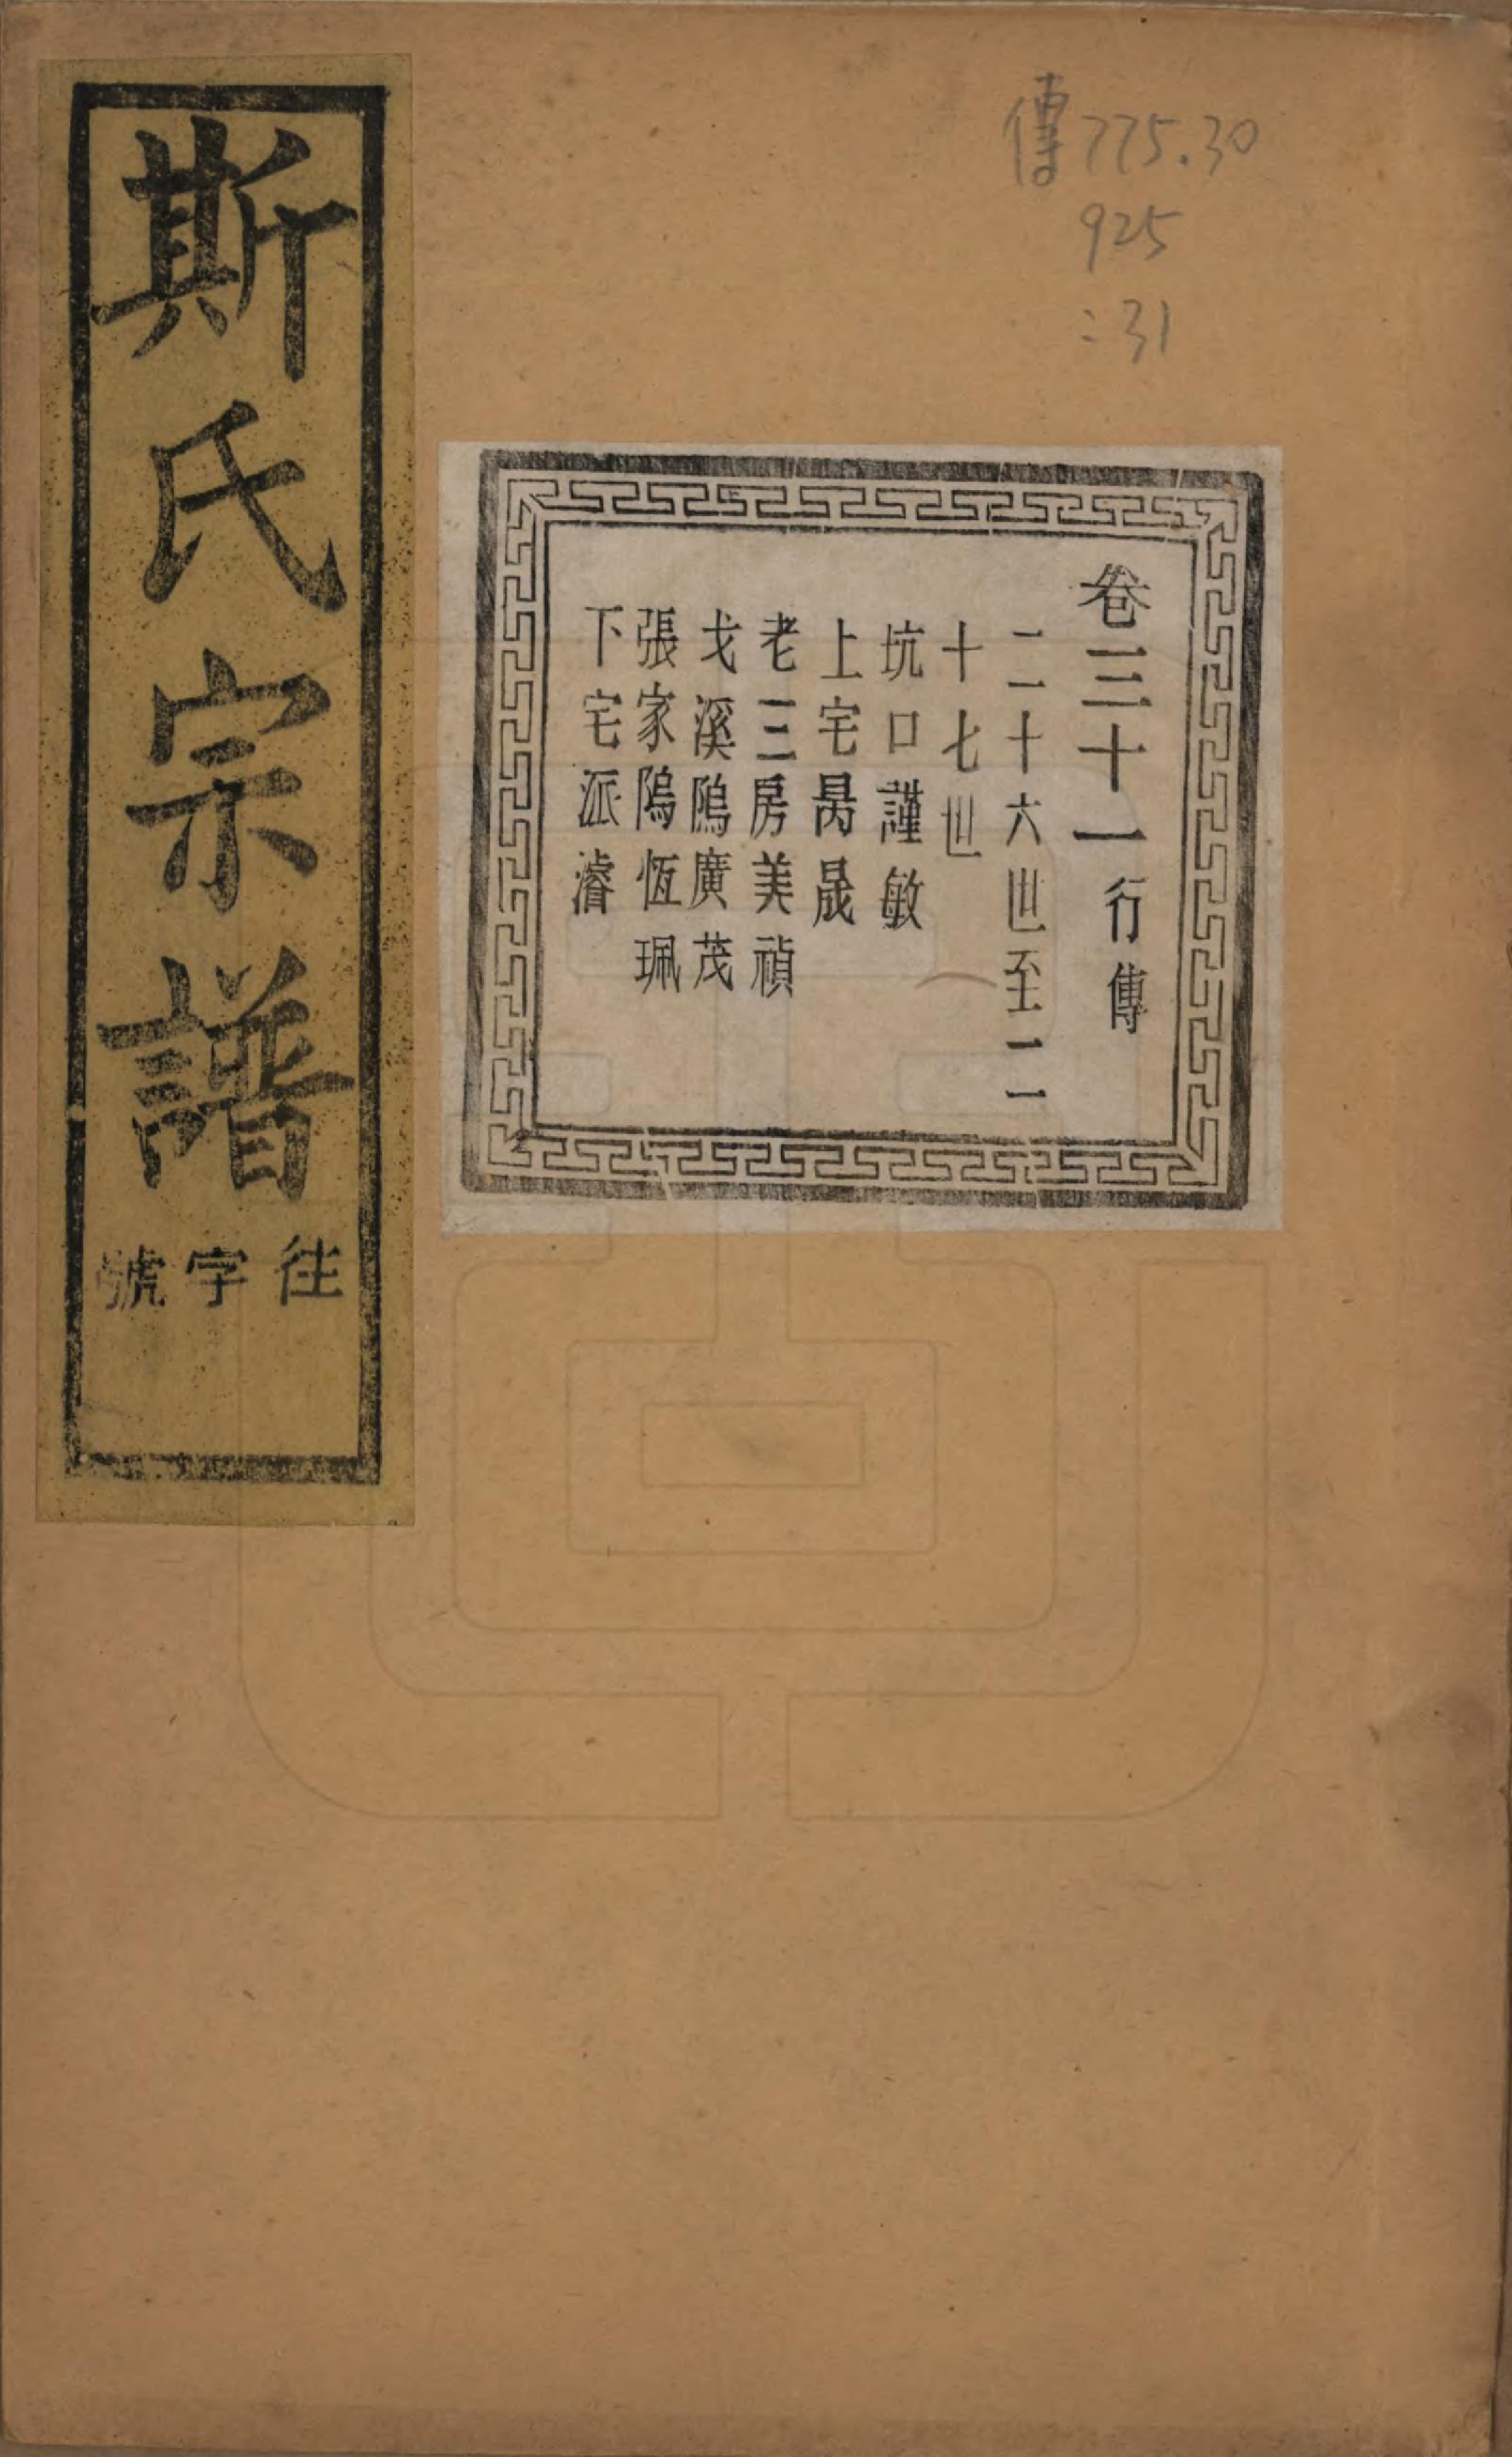 斯氏宗譜
往字號
傳775.30
925
:31
卷三十一行傳
二十六世至二
十七世
坑口謹敏
上宅勗晟
老三房美禎
戈溪隖廣茂
張家隖恆珮
下宅派濬